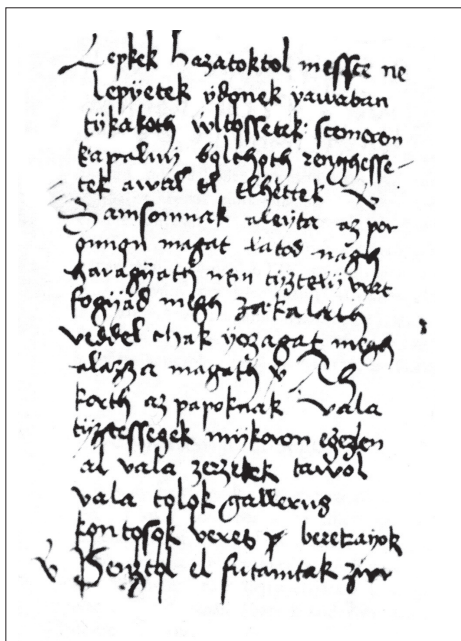 Lepkek hazatoktol messce ne
lepyetek ydonek yawaban
tykakoth wltossetek scomoron
kapalwy bolchoth renghesse-
tek awal el elhettek v
Samsomnak aleyta az por
onnon magat latod nagh
haragyath nem tyztely
fogyad megh zakalath
veddel chak yozagat megh
alazza magath v Th
korth az papoknak vala
tyztessegek mykoron egezen
al vala zerzetek tawol
vala tolok gallerus
kontosok veres p berekayok
v Penztol el futamtak zwr